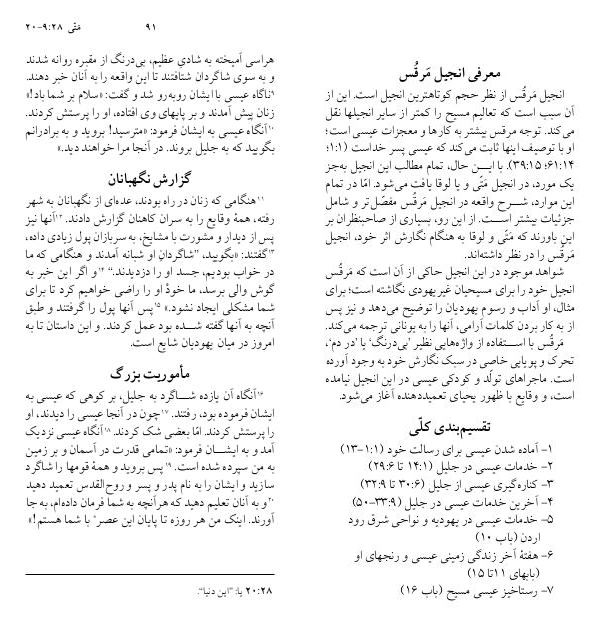 ۹۱
مَتّی ۲۸:‏۹-۲۰
معرفی انجیل مَرقُس
انجیل مَرقُس از نظر حجم کوتاهترین انجیل است. این از
آن سبب است که تعالیم مسیح را کمتر از سایر انجیلها نقل
می‌کند. توجه مرقس بیشتر به کارها و معجزات عیسی است؛
او با توصیف اینها ثابت می‌کند که عیسی پسر خداست (۱:۱؛
۶۱:۱۴؛ ۳۹:۱۵). با این حال، تمام مطالب این انجیل به‌جز
یک مورد، در انجیل مَتّی و یا لوقا یافت می‌شود. امّا در تمام
این موارد، شرح واقعه در انجیل مرقس مفصّل‌تر و شامل
جزئیات بیشتر است. از این رو، بسیاری از صاحبنظران بر
این باورند که مَتّی و لوقا به هنگام نگارش اثر خود، انجیل
مَرقُس را در نظر داشته‌اند.
شواهد موجود در این انجیل حاکی از آن است که مَرقُس
انجیل خود را برای مسیحیان غیریهودی نگاشته است؛ برای
مثال، او آداب و رسوم یهودیان را توضیح می‌دهد و نیز پس
از به کار بردن کلمات آرامی، آنها را به یونانی ترجمه می‌کند.
مَرقُس با استفاده از واژه‌هایی نظیر ’بی‌درنگ‘ یا ’در دم‘،
تحرک و پویایی خاصی در سبک نگارش خود به وجود آورده
است. ماجراهای تولّد و کودکی عیسی در این انجیل نیامده
است، و وقایع با ظهور یحیای تعمیددهنده آغاز می‌شود.
تقسیم‌بندی کلّی
۱- آماده شدن عیسی برای رسالت خود (۱:۱-۱۳)
۲- خدمات عیسی در جلیل (۱۴:۱ تا ۲۹:۶)
۳- کناره‌گیری عیسی از جلیل (۳۰:۶ تا ۳۲:۹)
۴- آخرین خدمات عیسی در جلیل (۳۳:۹-۵۰)
۵- خدمات عیسی در یهودیه و نواحی شرق رود
اردن (باب ۱۰)
۶- هفتهٔ آخر زندگی زمینی عیسی و رنجهای او
(بابهای ۱۱تا ۱۵)
۷- رستاخیز عیسی مسیح (باب ۱۶)
هراسی آمیخته به شادیِ عظیم، بی‌درنگ از مقبره روانه شدند
و به سوی شاگردان شتافتند تا این واقعه را به آنان خبر دهند.
۹ناگاه عیسی با ایشان روبه‌رو شد و گفت: «سلام بر شما باد!»
زنان پیش آمدند و بر پایهای وی افتاده، او را پرستش کردند.
۱۰آنگاه عیسی به ایشان فرمود: «مترسید! بروید و به برادرانم
بگویید که به جلیل بروند. در آنجا مرا خواهند دید.»
گزارش نگهبانان
۱۱هنگامی که زنان در راه بودند، عده‌ای از نگهبانان به شهر
رفته، همهٔ وقایع را به سران کاهنان گزارش دادند. ۱۲آنها نیز
پس از دیدار و مشورت با مشایخ، به سربازان پول زیادی داده،
۱۳گفتند: «بگویید، ”شاگردانِ او شبانه آمدند و هنگامی که ما
در خواب بودیم، جسد او را دزدیدند.“ ۱۴و اگر این خبر به
گوش والی برسد، ما خودْ او را راضی خواهیم کرد تا برای
شما مشکلی ایجاد نشود.» ۱۵پس آنها پول را گرفتند و طبق
آنچه به آنها گفته شده بود عمل کردند. و این داستان تا به
امروز در میان یهودیان شایع است.
مأموریت بزرگ
۱۶آنگاه آن یازده شاگرد به جلیل، بر کوهی که عیسی به
ایشان فرموده بود، رفتند. ۱۷چون در آنجا عیسی را دیدند، او
را پرستش کردند. امّا بعضی شک کردند. ۱۸آنگاه عیسی نزدیک
آمد و به ایشان فرمود: «تمامی قدرت در آسمان و بر زمین
به من سپرده شده است. ۱۹پس بروید و همهٔ قومها را شاگرد
سازید و ایشان را به نام پدر و پسر و روح‌القدس تعمید دهید
۲۰و به آنان تعلیم دهید که هرآنچه به شما فرمان داده‌ام، به جا
آورند. اینک من هر روزه تا پایان این عصر* با شما هستم!»
۲۰:۲۸ یا: ”این دنیا“.